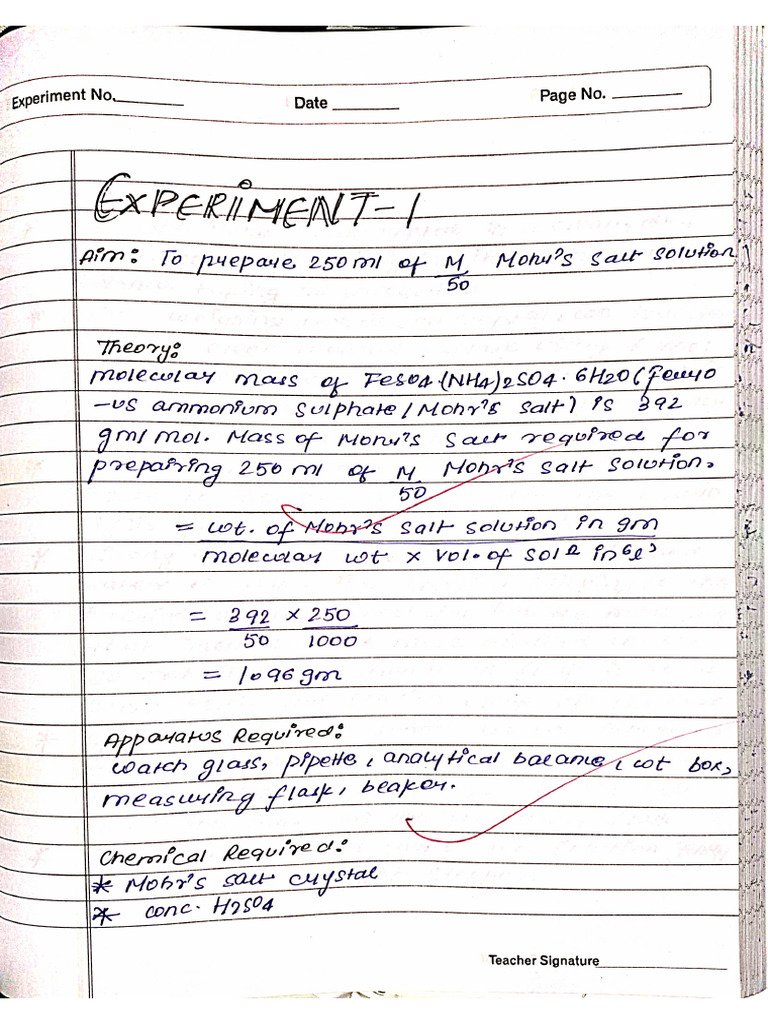 Experiment No. Date Page No.
EXPERIIMENT-1
Aim: To prepare 250 ml of M/50 Mohr's salt solution
Theory:
molecular mass of FeSO4.(NH4)2SO4.6H2O (ferro
-us ammonium sulphate/Mohr's salt) is 392
gm/mol. Mass of Mohr's salt required for
prepairing 250 ml of M/50 Mohr's salt solution.
= wt. of Mohr's salt solution in gm
molecular wt x vol. of sol in
= 392/50 x 250/1000
= 1.96gm
Apparatus Required:
watch glass, pipette, analytical balance, wt box,
measuring flask, beaker.
Chemical Required:
* Mohr's salt crystal
* conc. H2SO4
Teacher Signature